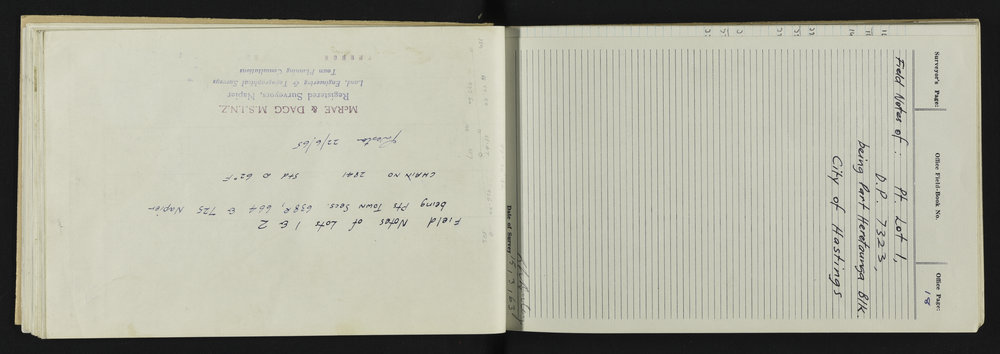 Field Notes of Lots 1 & 2
being Pts Town Secs. 638R, 664 & 725 Napier
CHAIN NO 2841 Std @ 62°F
22/6/65
McRAE & DAGG M.S.I.N.Z.
Registered Surveyors, Napier
Land, Engineering & Topographical Surveys
Town Planning Consultants
Surveyor's Page:
Office Field-Book No.
Office Page:
18
Field Notes of: Pt. Lot 1,
D.P. 7323,
being Part Heretaunga Blk.
City of Hastings
Date of Survey